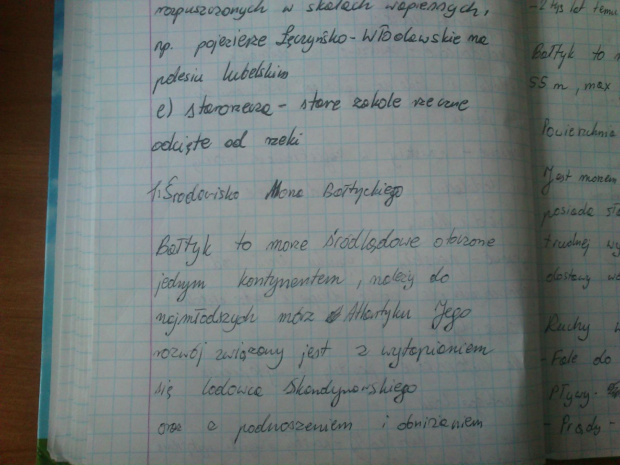 rozpuszczonych w skałach wapiennych,
np. pojezierze Łęczyńsko-Włodawskie na
polesiu lubelskim
e) starorzecza - stare zakole rzeczne
odcięte od rzeki
1. Środowisko Morza Bałtyckiego
Bałtyk to morze śródlądowe otoczone
jednym kontynentem, należy do
najmłodszych mórz Atlantyku Jego
rozwój związany jest z wytapianiem
się lodowca Skandynawskiego
oraz z podnoszeniem i obniżaniem
lat temu
Bałtyk to
55 m, max
Powierzchnia
Jest morzem
posiada
trudnej
dostawy
Ruchy
- Fale do
Pływy
- Prądy -